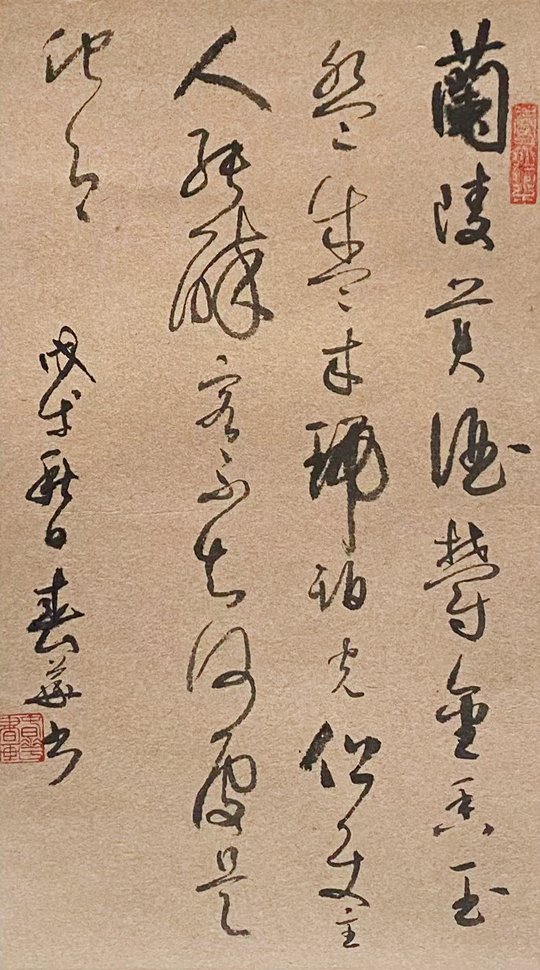 蘭陵美酒鬱金香玉
盌盛來琥珀光但使主
人能醉客不知何處是
他鄉
戊戌秋日春華书